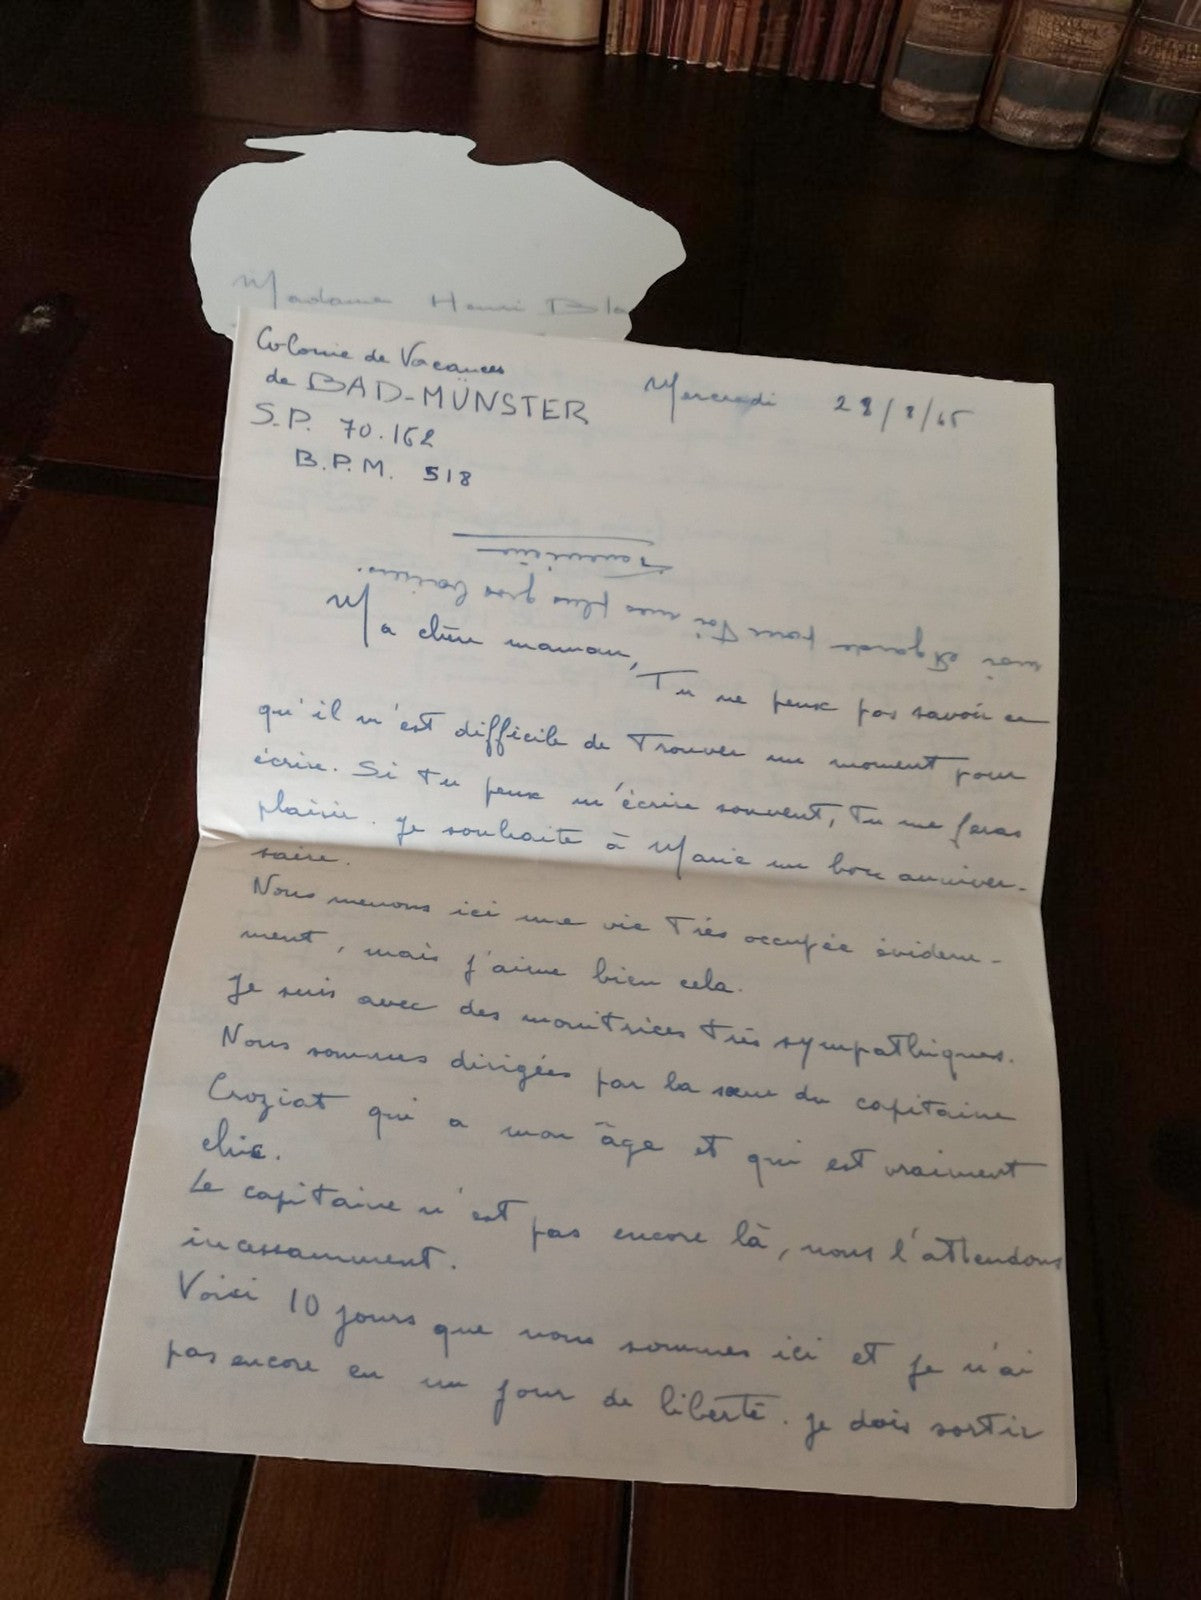 Madame Henri Bla
Colonie de Vacances
de BAD-MÜNSTER
S.P. 70.162
B.P.M. 518
Mercredi 28/8/65
noir et garde pour toi mes plus gros baisers.
Ma chère maman,
Tu ne peux pas savoir ce
qu'il m'est difficile de trouver un moment pour
écrire. Si tu peux m'écrire souvent, tu me feras
plaisir. Je souhaite à Marie un bon anniver-
saire.
Nous menons ici une vie très occupée évidem-
ment, mais j'aime bien cela.
Je suis avec des monitrices très sympathiques.
Nous sommes dirigées par la sœur du capitaine
Croziat qui a mon âge et qui est vraiment
chic.
Le capitaine n'est pas encore là, nous l'attendons
incessamment.
Voici 10 jours que nous sommes ici et je n'ai
pas encore eu un jour de liberté. Je dois sortir